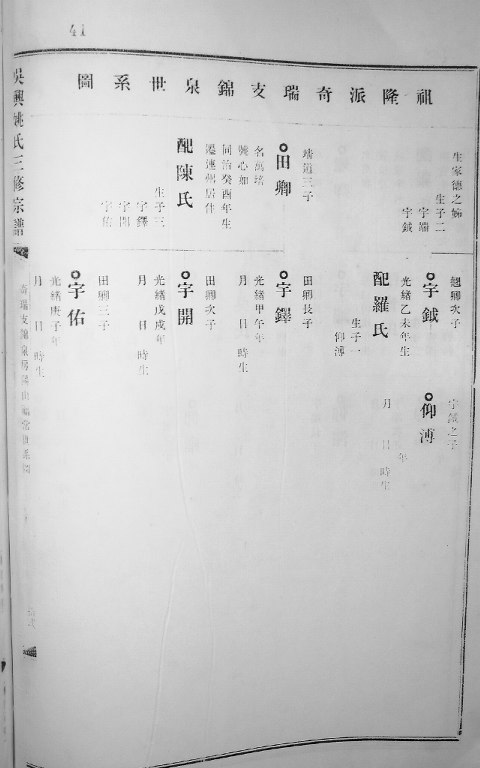 41
祖隆派奇瑞支錦泉世系圖
生家德之婦
生子二
字瑞
字鉞
靖道三子
田卿
名萬琀
號心如
同治癸酉年生
遷連州居住
配陳氏
生子三
字鐸
字開
字佑
翹卿次子
字鉞
光緒乙未年生
配羅氏
生子一
仰溥
田卿長子
字鐸
光緒甲午年
月 日 時生
田卿次子
字開
光緒戊戌年
月 日 時生
田卿三子
字佑
光緒庚子年
月 日 時生
字鉞之子
仰溥
年
月 日 時生
吳興姚氏三修宗譜